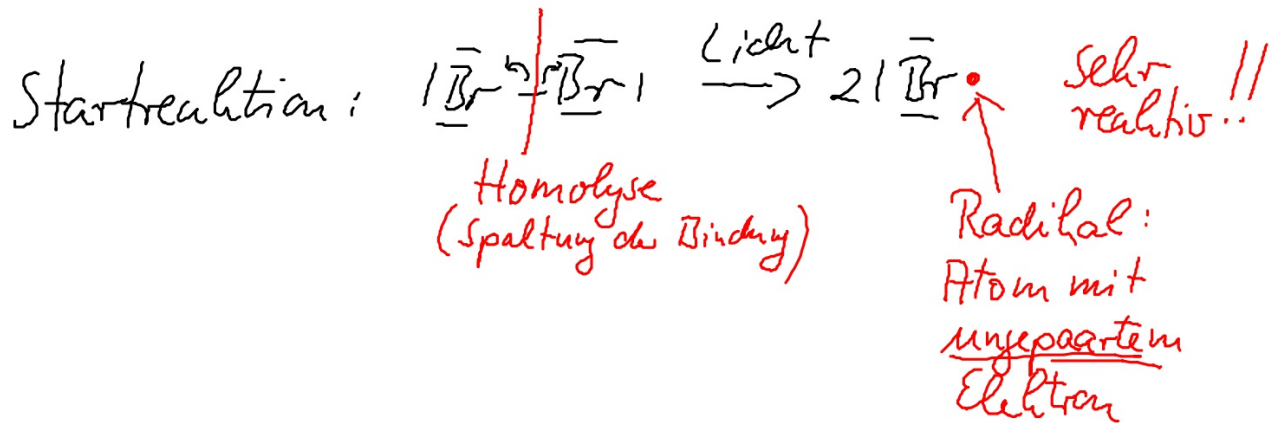 Startreaktion: |Br–Br| Licht → 2 |Br• sehr reaktiv!!
Homolyse
(Spaltung der Bindung)
Radikal:
Atom mit
ungepaartem
Elektron